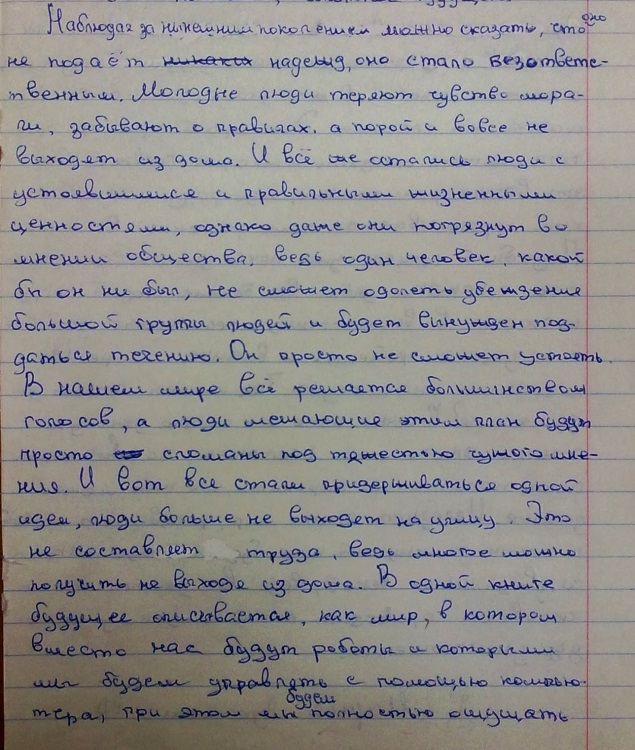 Наблюдая за нынешним поколением можно сказать, что оно
не подаёт никаких надежд, оно стало безответс-
твенным. Молодые люди теряют чувство мора-
ли, забывают о правилах, а порой и вовсе не
выходят из дома. И всё же остались люди с
устоявшимися и правильными жизненными
ценностями, однако даже они погрязнут во
мнении общества, ведь один человек, какой
бы он ни был, не сможет одолеть убеждение
большой группы людей и будет вынужден под-
даться течению. Он просто не сможет устоять.
В нашем мире всё решается большинством
голосов, а люди мешающие этим план будут
просто сломаны под тяжестью чужого мне-
ния. И вот все стали придерживаться одной
идеи, люди больше не выходят на улицу. Это
не составляет труда, ведь многое можно
получить не выходя из дома. В одной книге
будущее описывается, как мир, в котором
вместо нас будут роботы и которыми
мы будем управлять с помощью компью-
тера, при этом мы будем полностью ощущать